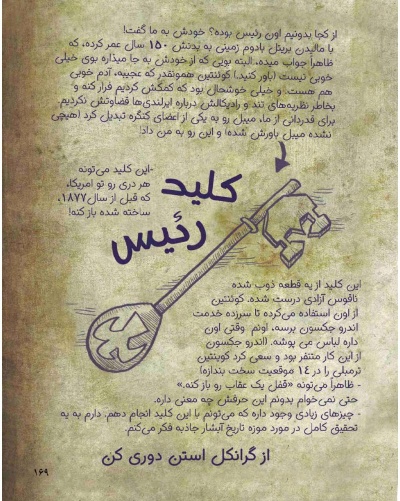 از کجا بدونیم اون رئیس بوده؟ خودش به ما گفت!
با مالیدن بریتل بادوم زمینی به بدنش ۱۵۰ سال عمر کرده، که
ظاهرا جواب میده. البته بویی که از خودش به جا میذاره بوی خیلی
خوبی نیست (باور کنید) کوئنتین همونقدر که عجیبه، آدم خوبی
هم هست. و خیلی خوشحال بود که کمکش کردیم فرار کنه و
بخاطر نظریه‌های تند و رادیکالش درباره ایرلندی‌ها قضاوتش نکردیم.
برای قدردانی از ما، میبل رو به یکی از اعضای کنگره تبدیل کرد (هیچی
نشده میبل باورش شده) و این رو به من داد:
کلید
رئیس
-این کلید می‌تونه
هر دری رو تو امریکا،
که قبل از سال ۱۸۷۷،
ساخته شده باز کنه!
این کلید از یه قطعه ذوب شده
ناقوس آزادی درست شده. کوئنتین
از اون استفاده می‌کرده تا سرزده خدمت
اندرو جکسون برسه، اونم وقتی اون
داره لباس می پوشه. (اندرو جکسون
از این کار متنفر بود و سعی کرد کوینتین
ترمبلی را در ۱۴ موقعیت سخت بندازه)
- ظاهرا می‌تونه «قفل یک عقاب رو باز کنه.»
حتی نمی‌خوام بدونم این حرفش چه معنی داره.
- چیزهای زیادی وجود داره که می‌تونم با این کلید انجام دهم. دارم به یه
تحقیق کامل در مورد موزه تاریخ آبشار جاذبه فکر می‌کنم.
از گرانکل استن دوری کن
۱۶۹